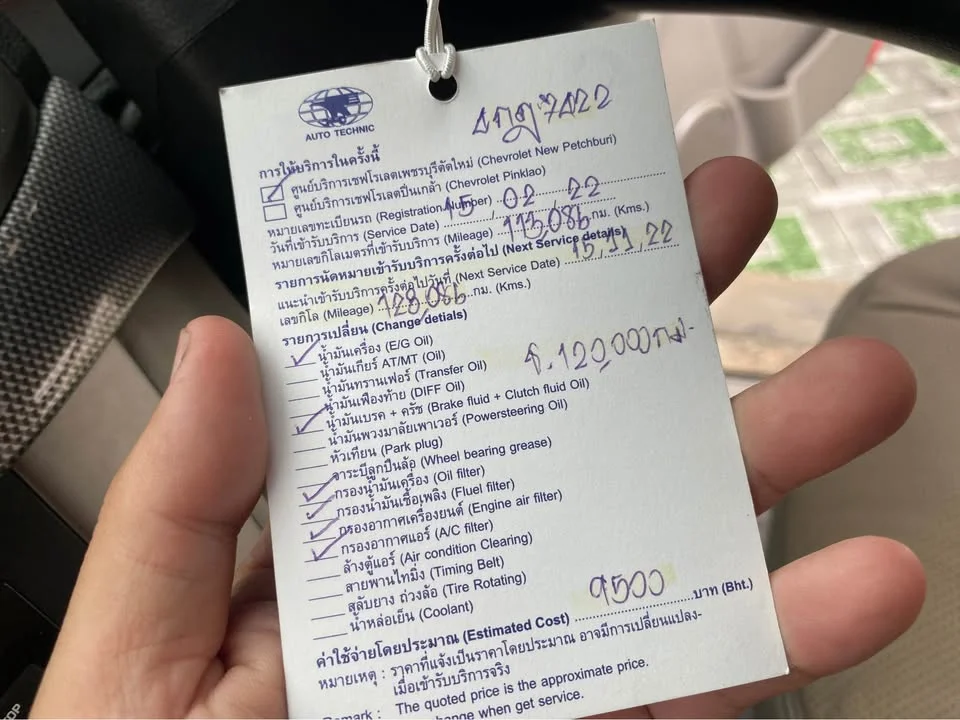 AUTO TECHNIC
การให้บริการในครั้งนี้
ศูนย์บริการเชฟโรเลตเพชรบุรีตัดใหม่ (Chevrolet New Petchburi)
ศูนย์บริการเชฟโรเลตปิ่นเกล้า (Chevrolet Pinklao)
หมายเลขทะเบียนรถ (Registration Number)
วันที่เข้ารับบริการ (Service Date) 15, 02, 22
หมายเลขกิโลเมตรที่เข้ารับบริการ (Mileage) 113,086 กม. (Kms.)
รายการนัดหมายเข้ารับบริการครั้งต่อไป (Next Service details)
แนะนำเข้ารับบริการครั้งต่อไปวันที่ (Next Service Date) 15, 11, 22
เลขกิโล (Mileage) 128,086 กม. (Kms.)
รายการเปลี่ยน (Change detials)
น้ำมันเครื่อง (E/G Oil)
น้ำมันเกียร์ AT/MT (Oil)
น้ำมันทรานเฟอร์ (Transfer Oil)
120,000 กม-
น้ำมันเฟืองท้าย (DIFF Oil)
น้ำมันเบรค + ครัช (Brake fluid + Clutch fluid Oil)
น้ำมันพวงมาลัยเพาเวอร์ (Powersteering Oil)
หัวเทียน (Park plug)
จาระบีลูกปืนล้อ (Wheel bearing grease)
กรองน้ำมันเครื่อง (Oil filter)
กรองน้ำมันเชื้อเพลิง (Fluel filter)
กรองอากาศเครื่องยนต์ (Engine air filter)
กรองอากาศแอร์ (A/C filter)
ล้างตู้แอร์ (Air condition Clearing)
สายพานไทมิ่ง (Timing Belt)
สลับยาง ถ่วงล้อ (Tire Rotating)
น้ำหล่อเย็น (Coolant)
ค่าใช้จ่ายโดยประมาณ (Estimated Cost) 9500 บาท (Bht.)
หมายเหตุ : ราคาที่แจ้งเป็นราคาโดยประมาณ อาจมีการเปลี่ยนแปลง-
เมื่อเข้ารับบริการจริง
The quoted price is the approximate price.
when get service.